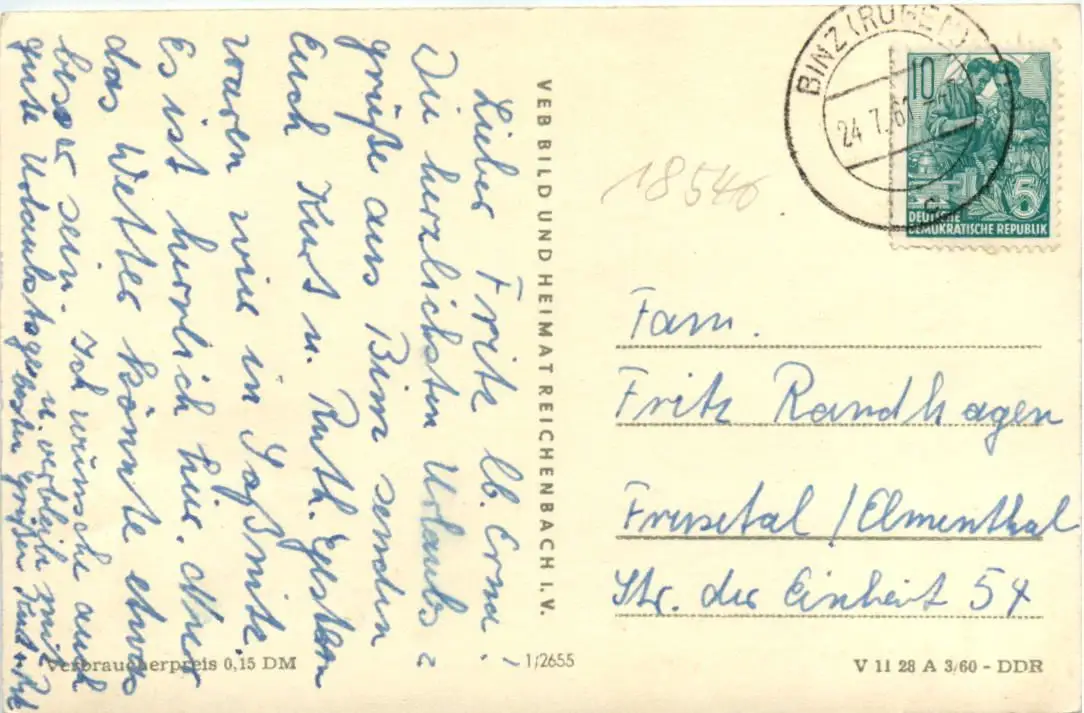 Lieber Fritz lb. Erna!
Die herzlichsten Urlaubs=
grüße aus Binz senden
Euch Kurt u. Ruth. Gestern
waren wir in Saßnitz.
Es ist herrlich hier. Nur
das Wetter könnte etwas
besser sein. Ich wünsche auch
gute Urlaubstage u. verbleibe mit
besten Grüßen Kurt u. Ruth
VEB BILD UND HEIMAT REICHENBACH I. V.
18540
BINZ (RÜGEN)
24.7.61
c
10
5
DEUTSCHE
DEMOKRATISCHE REPUBLIK
Fam.
Fritz Randhagen
/Elmenthal
Str. der Einheit 54
Verbraucherpreis 0,15 DM
1/2655
V 11 28 A 3/60 - DDR